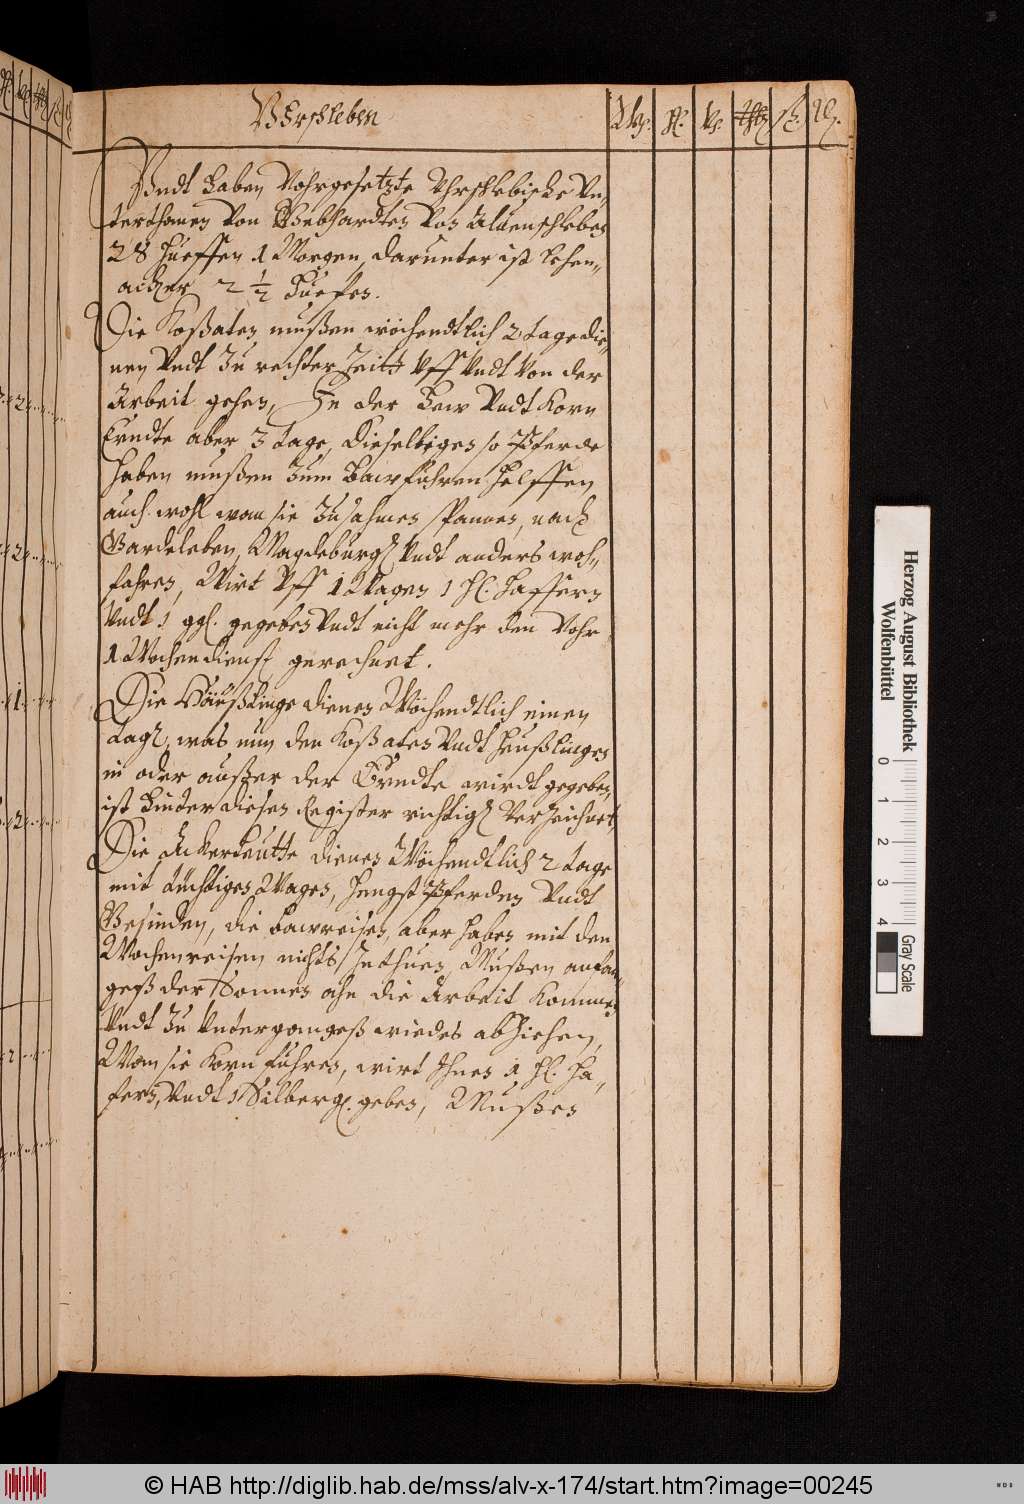 Vhrschleben
Vndt haben Vohrgesetzte Vhrschlebische Vn,
terthanen Von Gebhardten Von Aluenschleben
28 hueffen 1 Morgen, darunter ist Lehen,,
acker 2 1/2 Huefen.
Die Koßaten mußen wöchendtlich 2 tage die,,
nen Vndt Zu rechter Zeitt Vff Vndt Von der
Arbeit gehen, In der Hew Vndt Korn
Erndte aber 3 tage, dieselbigen so Pferde
haben mußen Zum bawfuhren helffen,
auch wohl wan sie Zusahmen spannen, nach
Gardeleben, Magdeburg Vndt anders woh,,
fahren, Wirt Vff 1 Wagen 1 hl. haffern
Vndt 1 ggl. gegeben Vndt nicht mehr den Vohr
1 Wochendienst gerechnet.
Die Häußlinge dienen Wöchendtlich einen
tagk, was nun den Koßaten Vndt heußlingen
in oder außer der Erndte wirdt gegeben,
ist hinter diesen Register richtigk Verzeichnet,
Die Ackerleutte dienen Wöchendtlich 2 tage
mit tüchtigen Wagen, hengst Pferden Vndt
Gesinden, die bawreisen, aber haben mit den
Wochenreisen nichts Zuthuen, Mußen anfan,,
geß der Sonnen ahn die Arbeit kommen
Vndt Zu Vntergangeß wieder abZiehen,
Wan sie Korn fuhren, wirt Ihnen 1 hl. ha,
fern, Vndt 1 Silbergl. geben, Mußen
Herzog August Bibliothek
Wolfenbüttel
0 1 2 3 4
Gray Scale
© HAB http://diglib.hab.de/mss/alv-x-174/start.htm?image=00245